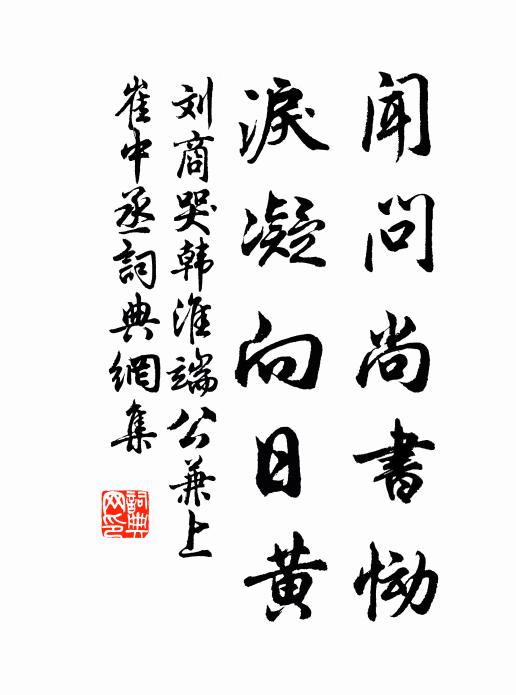 闻问尚书恸
淚凝向日黄
刘商哭韩淮端公兼上
崔中丞詞典網集
詞典网印